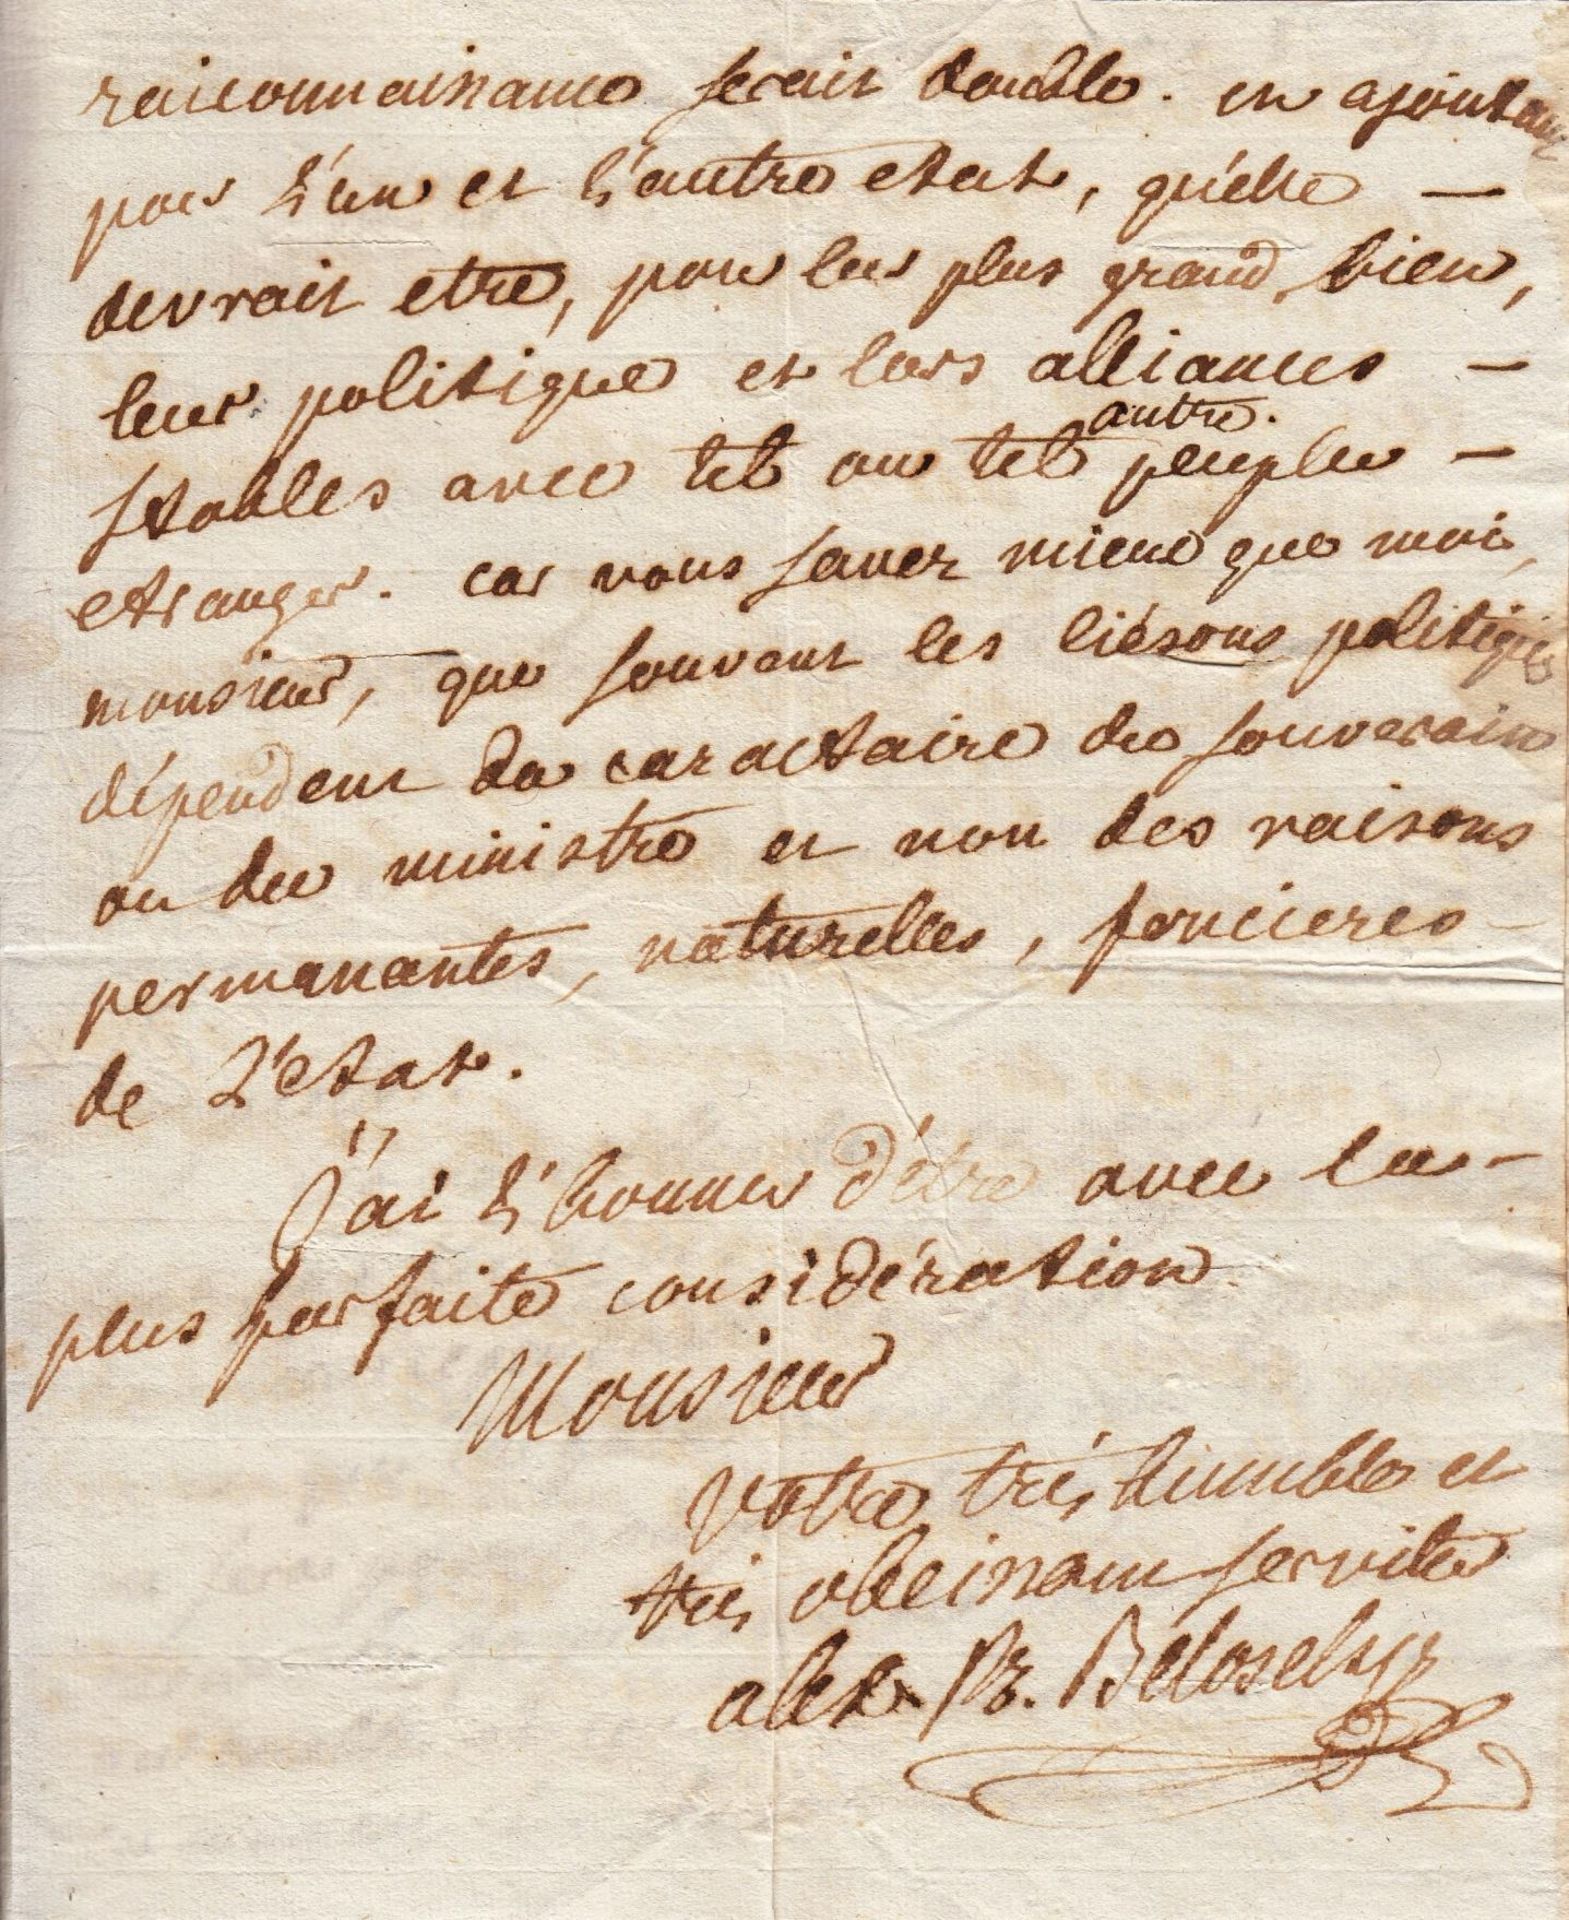 raiconnaissance serait double. en ajoutant
pour l'un et l'autre etat, qu'elle —
devrait etre, pour leur plus grand bien,
leur politique et leurs alliances —
autre.
stables avec tel ou tel peuple —
etranger. car vous savez mieux que moi,
monsieur, que souvent les liésons politiques
dépendent du caractaire du souverain
ou du ministre et non des raisons
permanantes, naturelles, foncieres —
de l'etat.
J'ai l'honneur d'être avec la —
plus parfaite considération
Monsieur
votre très humble et
très obeissant serviteur
alex. Pr. Beloselsky